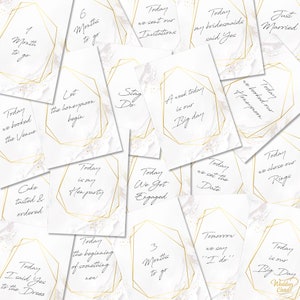 1
Month
to go
6
Months
to go
Today
we sent our
Invitations
Today
my bridesmaids
said Yes
Just
Married
Today
we booked
the Venue
Let
the honeymoon
begin
Stag
Do
A week today
is our
Big day
Today
we booked our
Honeymoon
Cake
tasted &
ordered
Today
is my
Hen party
Today
We Got
Engaged
Today
we set the
Date
Today
we chose our
Rings
Today
I said Yes
to the Dress
Today
the beginning
of something
new
3
Months
to go
Tomorrow
we say
"I do"
Today
is our
Big Day
Wedding